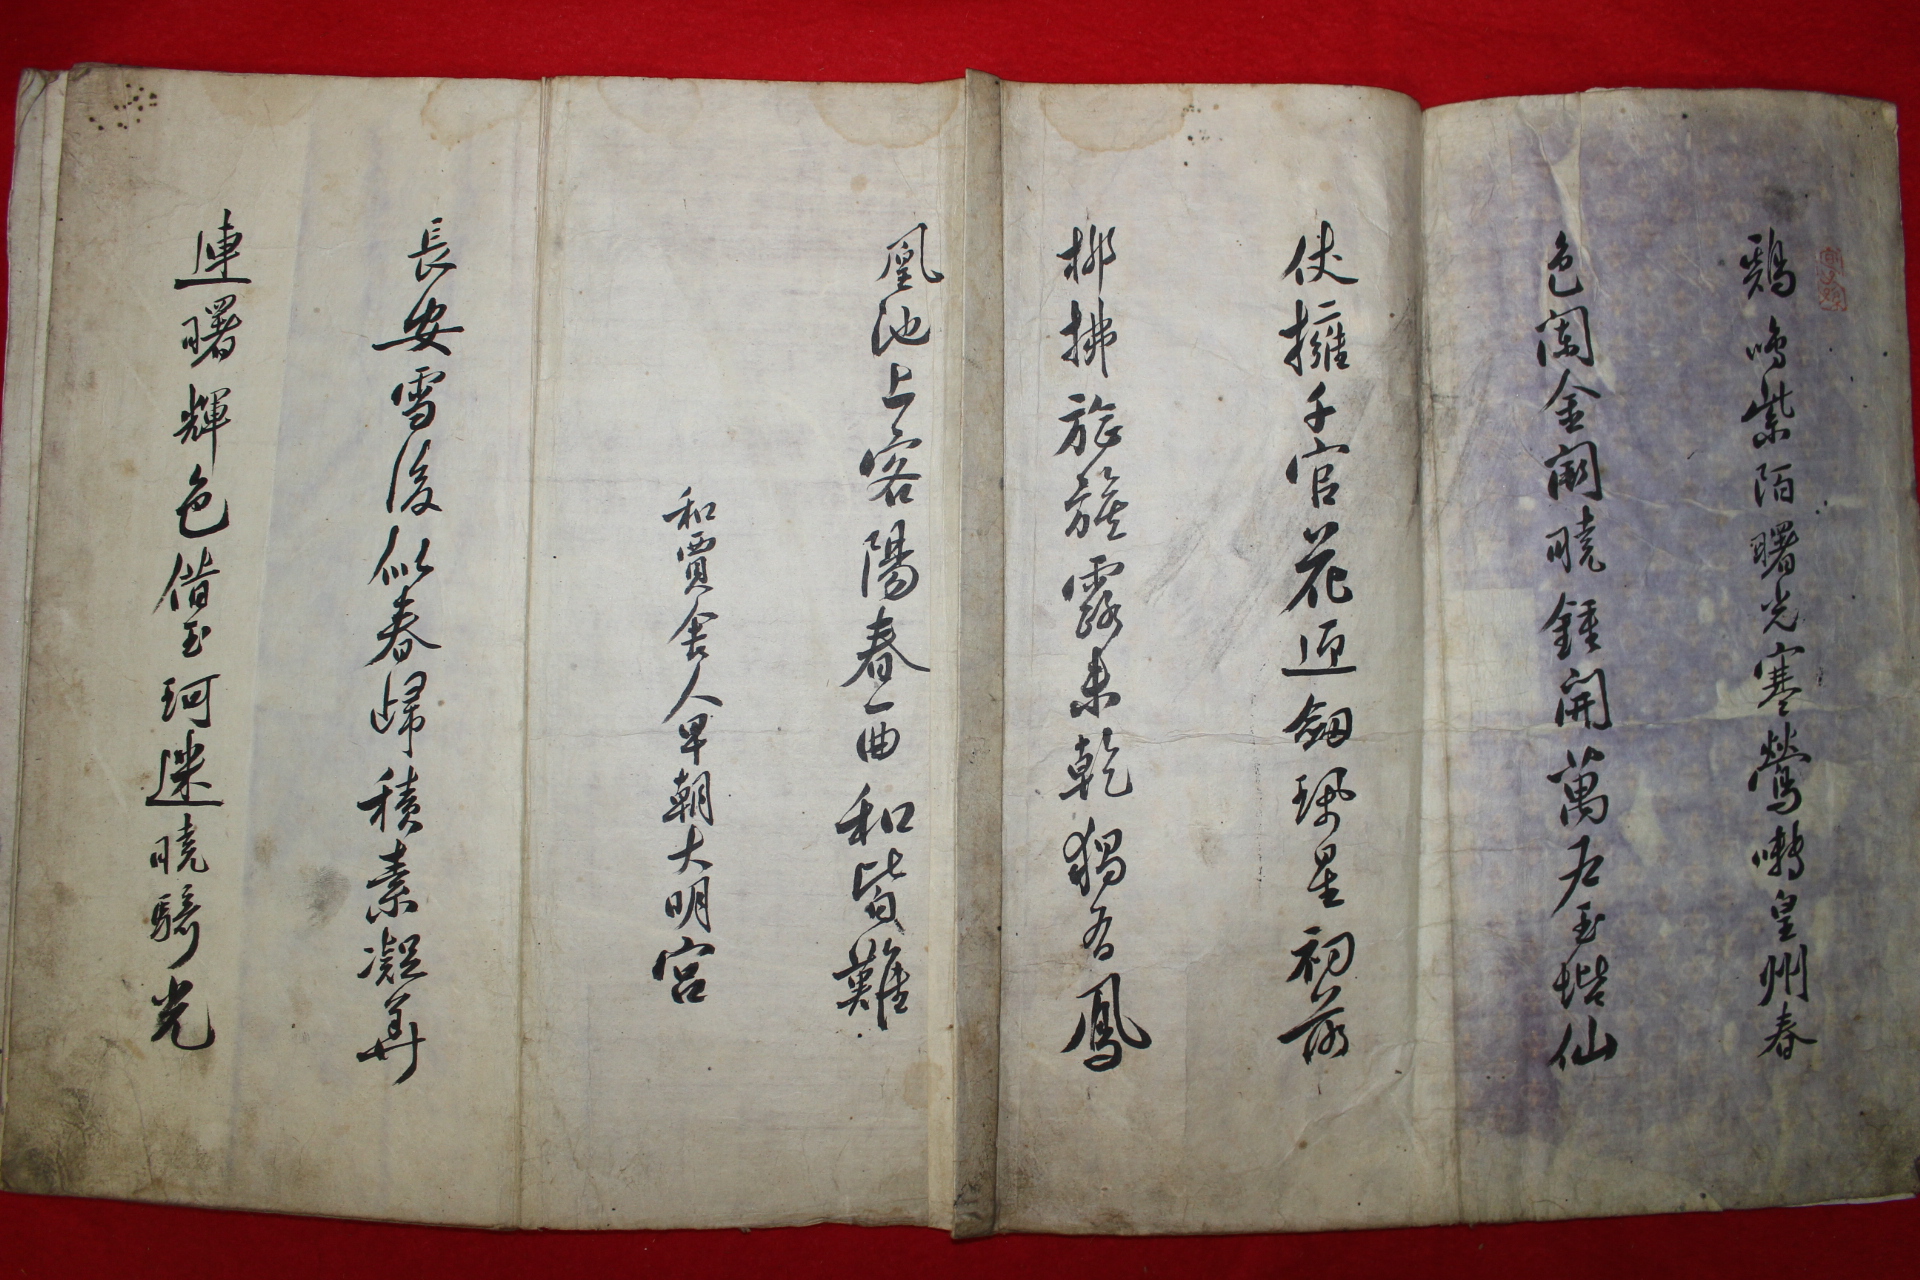 鷄鳴紫陌曙光寒鶯囀皇州春
色闌金闕曉鍾開萬戶玉堦仙
仗擁千官花迎劒珮星初落
柳拂旌旗露未乾獨有鳳
凰池上客陽春一曲和皆難
和賈舍人早朝大明宮
長安雪後似春歸積素凝華
連曙輝色借玉珂迷曉騎光